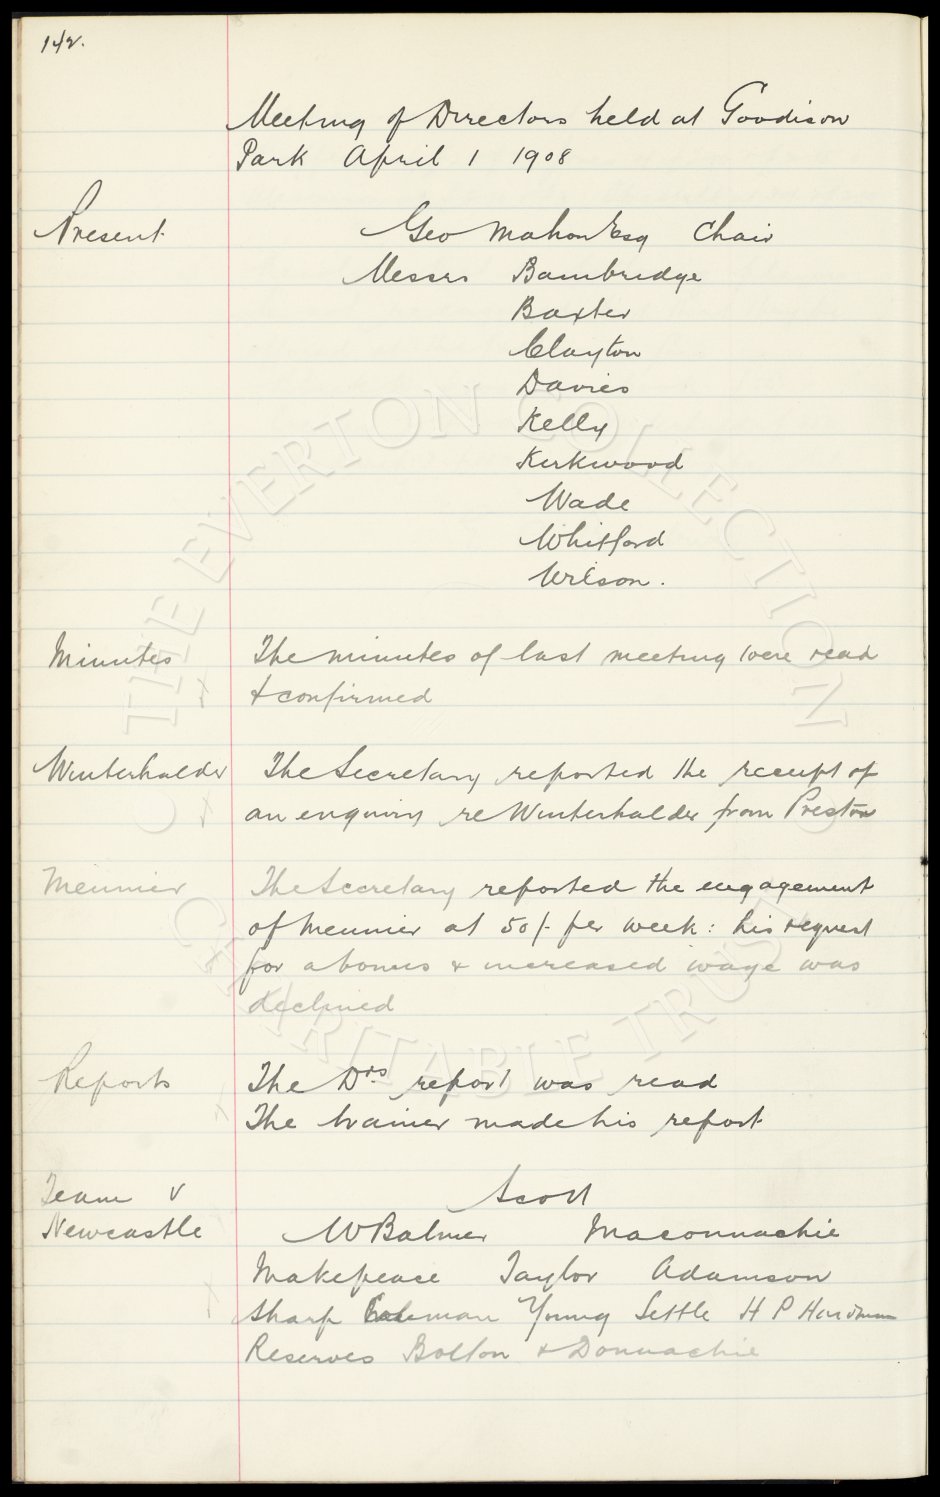 142.
Meeting of Directors held at Goodison
Park April 1 1908
Present Geo Mahon Esq Chair
Messrs Bainbridge
Baxter
Clayton
Davies
Kelly
Kirkwood
Wade
Whitford
Wilson.
Minutes The minutes of last meeting were read
& confirmed
Winterhalder The Secretary reported the receipt of
an enquiry re Winterhalder from Preston
Meunier The Secretary reported the engagement
of Meunier at 50/- per week: his request
for a bonus & increased wage was
declined
Reports The Drs report was read
The trainer made his report
Team v Scott
Newcastle W Balmer Maconnachie
Makepeace Taylor Adamson
Sharp Coleman Young Settle H P Hardman
Reserves Bolton & Donnachie
© THE EVERTON COLLECTION
CHARITABLE TRUST